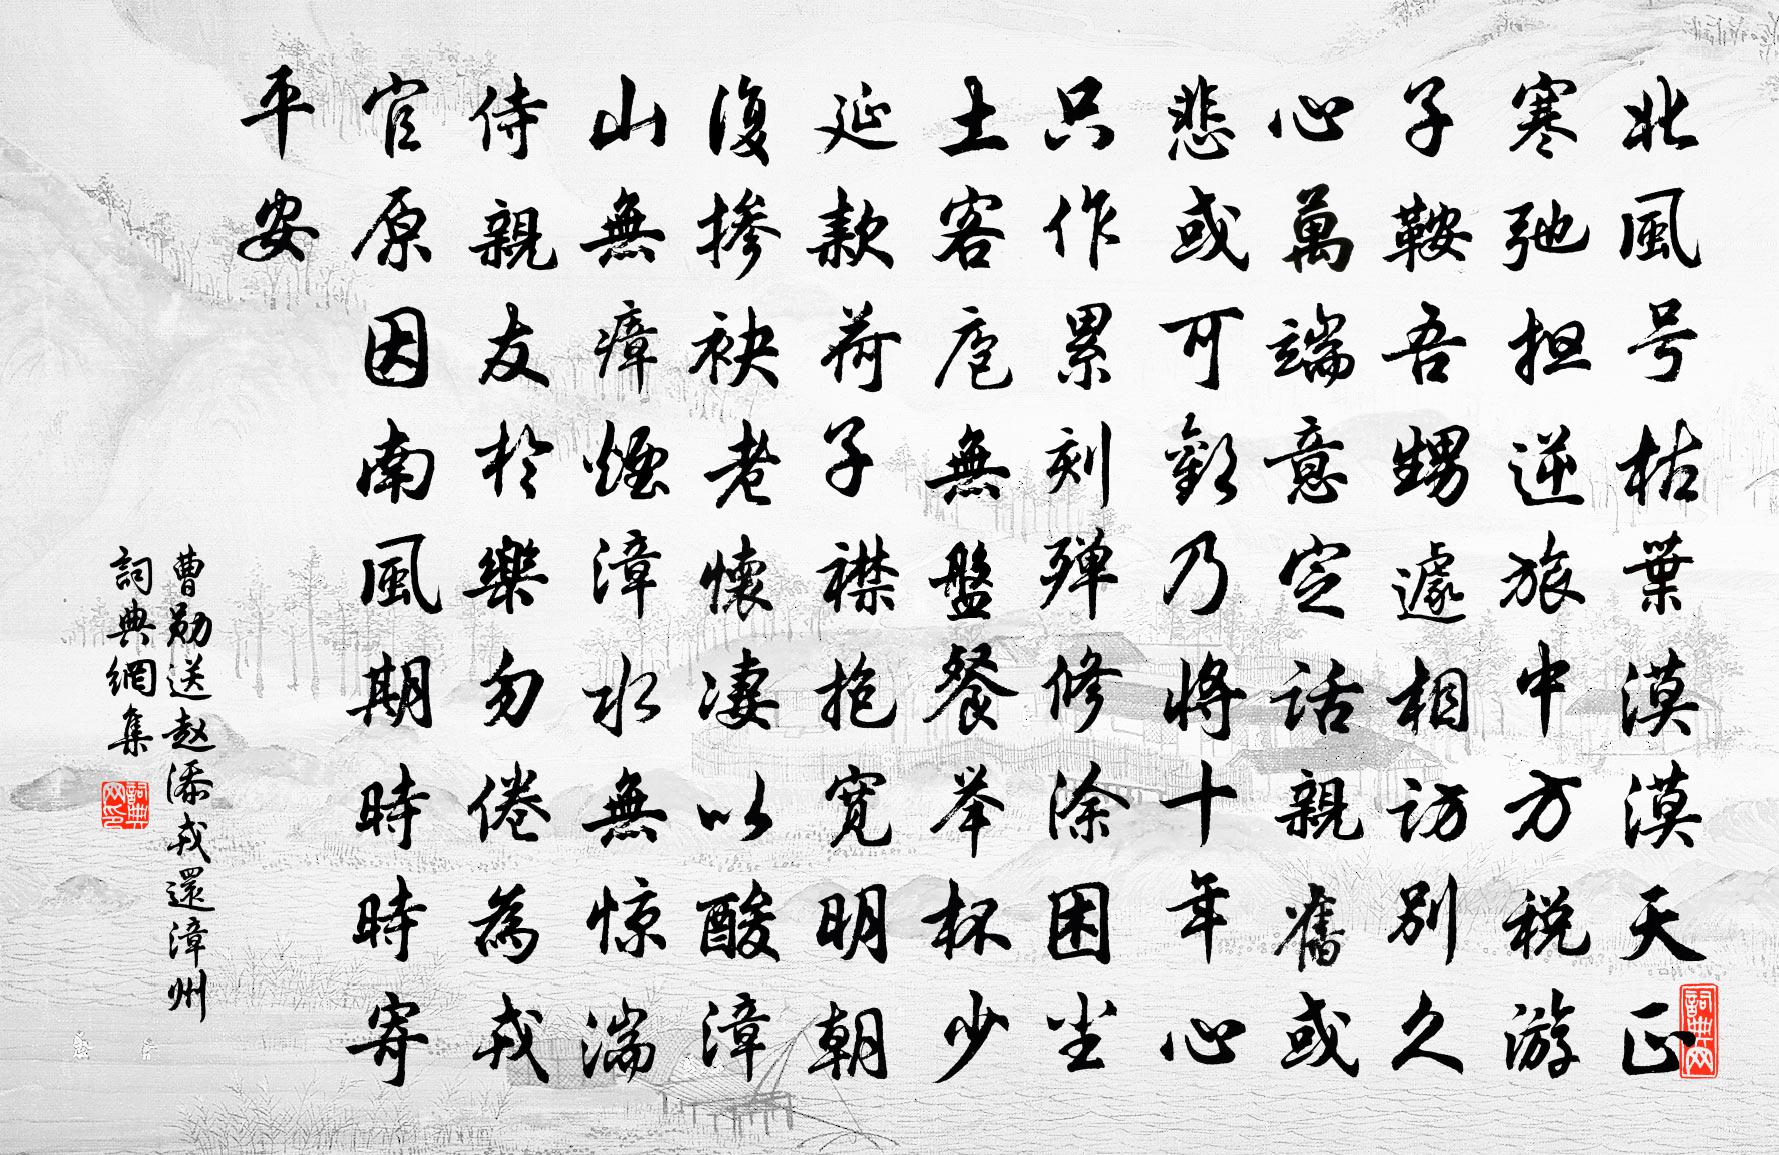 北風号枯葉漠漠天正
寒弛担逆旅中方税游
子鞍吾甥遽相访别久
心萬端意定话親舊或
悲或可歡乃將十年心
只作累刻殫修涂困尘
土客庖無盤餐举杯少
延款荷子襟抱寬明朝
復掺袂老懷凄以酸漳
山無瘴煙漳水無惊湍
侍親友於樂勿倦為戎
官原因南風期時時寄
平安
曹勋送赵添戎還漳州
詞典網集
詞典网印
詞典网